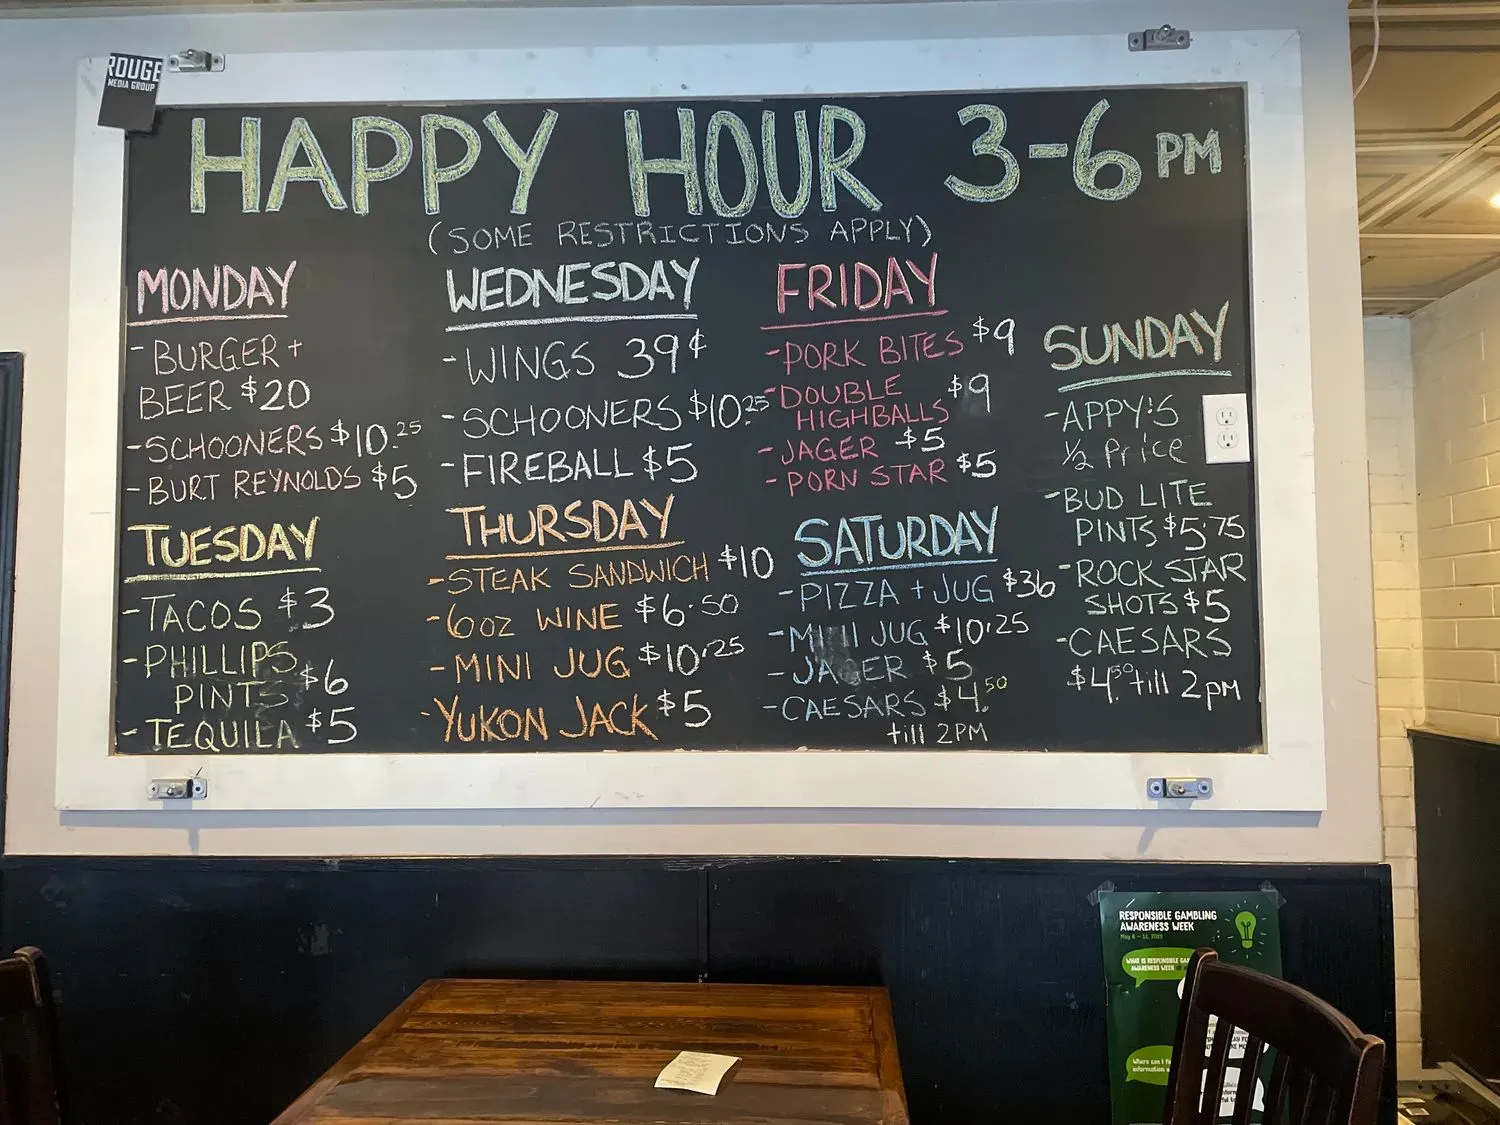 ROUGE
MEDIA GROUP
HAPPY HOUR 3-6 PM
(SOME RESTRICTIONS APPLY)
MONDAY
- BURGER +
BEER $20
- SCHOONERS $10.25
- BURT REYNOLDS $5
TUESDAY
- TACOS $3
- PHILLIPS
PINTS $6
- TEQUILA $5
WEDNESDAY
- WINGS 39¢
- SCHOONERS $10.25
- FIREBALL $5
THURSDAY
- STEAK SANDWICH $10
- 6oz WINE $6.50
- MINI JUG $10.25
- YUKON JACK $5
FRIDAY
- PORK BITES $9
- DOUBLE
HIGHBALLS $9
- JAGER $5
- PORN STAR $5
SATURDAY
- PIZZA + JUG $36
- MINI JUG $10.25
- JAGER $5
- CAESARS $4.50
till 2PM
SUNDAY
- APPY'S
1/2 Price
- BUD LITE
PINTS $5.75
- ROCK STAR
SHOTS $5
- CAESARS
$4.50 till 2pm
RESPONSIBLE GAMBLING
AWARENESS WEEK
WHAT IS RESPONSIBLE
AWARENESS WEEK
Where can I
information